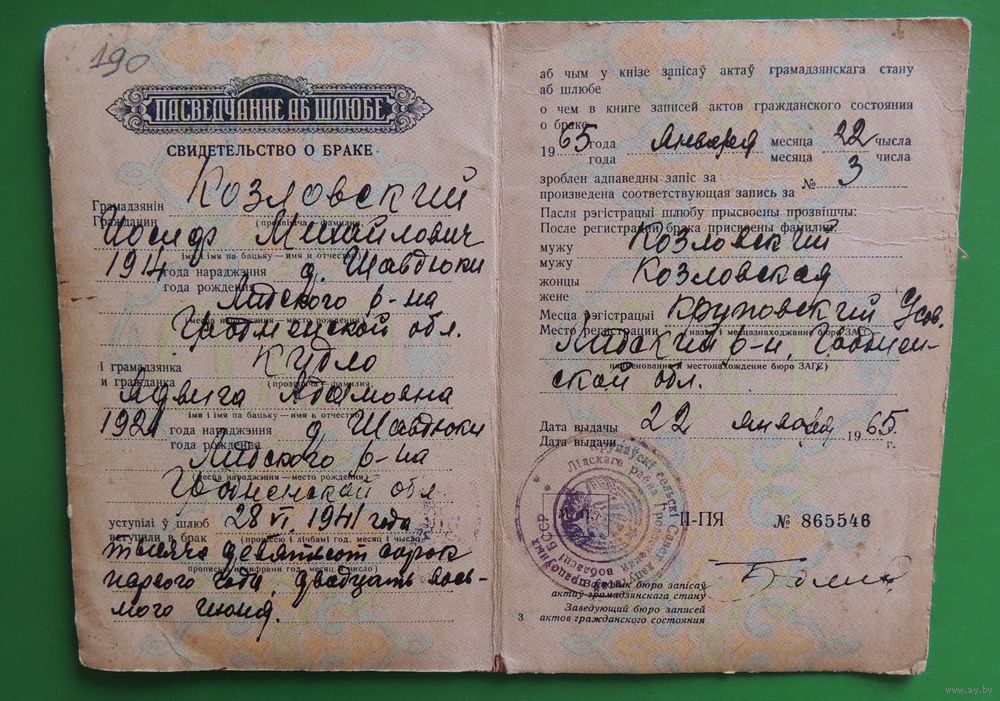 190
ПАСВЕДЧАННЕ АБ ШЛЮБЕ
СВИДЕТЕЛЬСТВО О БРАКЕ
Грамадзянін Козловский
Гражданин (прозвішча — фамилия)
Иосиф Михайлович
(імя і імя па бацьку — имя и отчество)
1914 года нараджэння д. Шавдюки
года рождения
Лидского р-на
(месца нараджэння — место рождения)
Гродненской обл.
і грамадзянка Кидло
и гражданка (прозвішча — фамилия)
Ядвига Адамовна
(імя і імя па бацьку — имя и отчество)
1921 года нараджэння д Шавдюки
года рождения
Лидского р-на
(месца нараджэння — место рождения)
Гродненской обл
уступілі ў шлюб 28 VI 1941 года
вступили в брак (пропіссю і лічбамі год, месяц і чысло)
тысяча девятьсот сорок
(прописью и цифрами год, месяц и число)
первого года, двадцать вось-
мого июня.
аб чым у кнізе запісаў актаў грамадзянскага стану
аб шлюбе
о чем в книге записей актов гражданского состояния
о браке
1965 года января месяца 22 чысла
года месяца числа
зроблен адпаведны запіс за № 3
произведена соответствующая запись за
Пасля рэгістрацыі шлюбу прысвоены прозвішчы:
После регистрации брака присвоены фамилии:
мужу Козловский
мужу
жонцы Козловская
жене
Месца рэгістрацыі Круповский
Место регистрации (назва і месцазнаходжанне бюро ЗАГС)
Лидский р-н, Гроднен-
(наименование и местонахождение бюро ЗАГС)
ской обл.
Дата выдачы 22 января 1965 г.
Дата выдачи
II-ПЯ № 865546
Загадчык бюро запісаў
актаў грамадзянскага стану
Заведующий бюро записей
актов гражданского состояния
3
www.ay.by